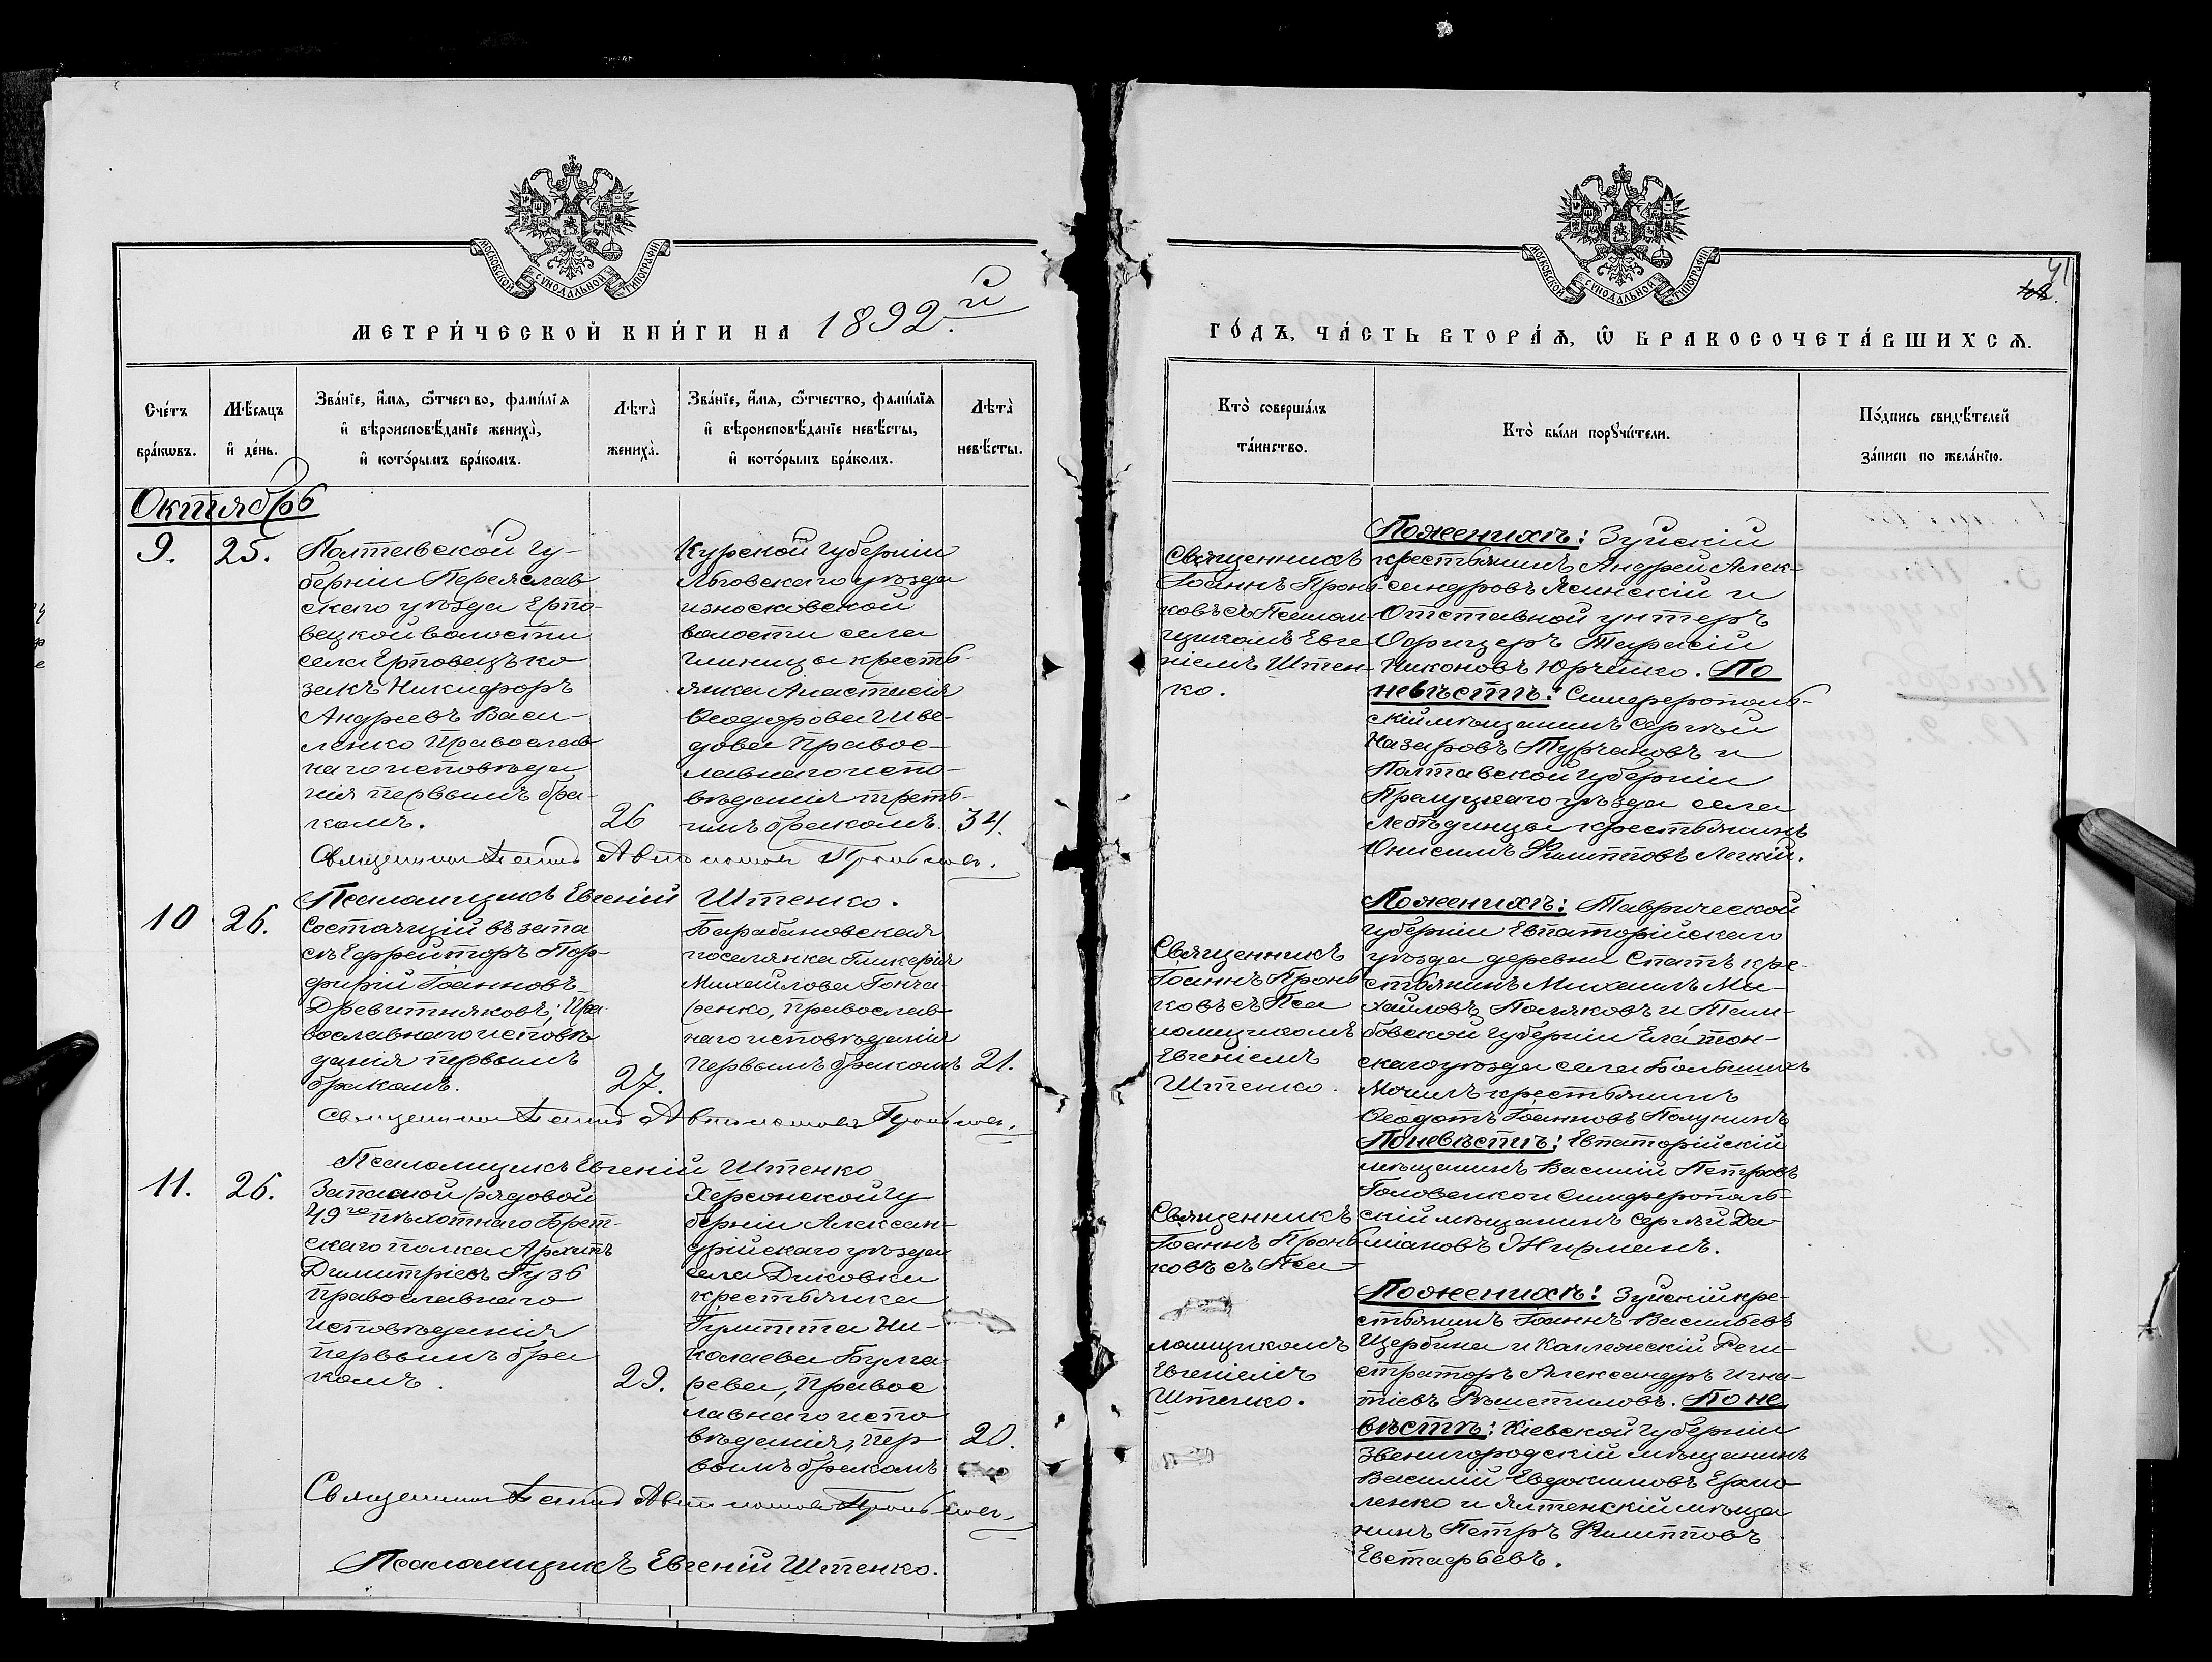 МОСКОВСКОЙ СѴНОДАЛЬНОЙ ТИПОГРАФІИ
МЕТРИ́ЧЕСКОЙ КНИ́ГИ НА 1892.й
Сче́тъ бра́кωвъ.
Мѣ́сяцъ и҆ де́нь.
Зва́нїе, и҆́мя, ѿ́чество, фами́лїя
и҆ вѣроисповѣ́данїе жениха̀,
и҆ кото́рымъ бра́комъ.
Лѣта̀ жениха̀.
Зва́нїе, и҆́мя, ѿ́чество, фами́лїя
и҆ вѣроисповѣ́данїе невѣ́сты,
и҆ кото́рымъ бра́комъ.
Лѣта̀ невѣ́сты.
Октябрь
9. 25.
Полтавской гу-
берніи Переяслав
скаго уѣзда Ерпо-
вецкой волости
села Ерповецъ ко
закъ Никифоръ
Андреевъ Васи-
ленко Православ
наго исповѣда
нія первымъ бра-
комъ.
26
Курской губерніи
Льговскаго уѣзда
износковской
волости села
глиницы кресть-
янка Анастасія
Ѳеодорова Шве-
дова Правос-
лавнаго испо-
вѣданія треть-
имъ бракомъ.
34.
Священникъ Іоаннъ Автономовъ Проньковъ.
Псаломщикъ Евгеній Штенко.
10 26.
Состоящій въ запа
сѣ Ефрейторъ Пор-
фирій Іоанновъ
Древитняковъ; Пра
вославнаго исповѣ
данія первымъ
бракомъ.
27.
Барабановская
поселянка Гликерія
Михайлова Гонча-
ренко, православ
наго исповѣданія
первымъ бракомъ
21.
Священникъ Іоаннъ Автономовъ Проньковъ.
Псаломщикъ Евгеній Штенко
11. 26.
Запасной рядовой
49го пѣхотнаго Брест-
скаго полка Архипъ
Димитріевъ Гузь
православнаго
исповѣданія
первымъ бра
комъ.
29.
Херсонской гу
берніи Алексан-
дрійскаго уѣзда
села Диковки
крестьянка
Гулитта Ни-
колаева Булга-
рева, Правос
лавнаго испо
вѣданія, пер
вымъ бракомъ
20.
Священникъ Іоаннъ Автономовъ Проньковъ.
Псаломщикъ Евгеній Штенко.
МОСКОВСКОЙ СѴНОДАЛЬНОЙ ТИПОГРАФІИ
41
ГО́ДЪ, ЧА́СТЬ ВТОРА́Ѧ, Ѽ БРАКОСОЧЕТА́ВШИХСѦ.
Кто̀ соверша́лъ
та́инство.
Кто̀ бы́ли порꙋчи́тели.
По́дпись свидѣ́телей
за́писи по жела́нїю.
Священникъ
Іоаннъ Пронь-
ковъ съ Псалом-
щикомъ Евге
ніемъ Штен-
ко.
По женихѣ: Зуйскій
крестьянинъ Андрей Алек-
сандровъ Ясинскій и
Отставной унтеръ
Офицеръ Тарасій
Никоновъ Юрченко. По
невѣстѣ: Симферополь-
скій мѣщанинъ Сергѣй
Назаровъ Турчановъ и
Полтавской губерніи
Прилуцкаго уѣзда села
Лебѣдинцы крестьянинъ
Онисимъ Филипповъ Легкій.
Священникъ
Іоаннъ Пронь
ковъ съ Пса
ломщикомъ
Евгеніемъ
Штенко.
По женихѣ: Таврической
губерніи Евпаторійскаго
уѣзда деревни Спатъ кре-
стьянинъ Михаилъ Ми-
хайловъ Поляковъ и Там-
бовской губерніи Елатон-
скаго уѣзда села Большихъ
Мочилъ крестьянинъ
Ѳеодотъ Іоанновъ Полунинъ
По невѣстѣ: Евпаторійскій
мѣщанинъ Василій Петровъ
Головенко и симферополь-
скій мѣщанинъ Сергѣй Да-
міановъ Жирманъ.
Священникъ
Іоаннъ Пронь-
ковъ съ Пса-
ломщикомъ
Евгеніемъ
Штенко.
По женихѣ: Зуйскій кре-
стьянинъ Іоаннъ Васильевъ
Щербина и Коллежскій Реги-
страторъ Александръ Игна-
тіевъ Рѣшетиловъ. По не
вѣстѣ: Кіевской губерніи
Звенигородскій мѣщанинъ
Василій Евдокимовъ Ермо
ленко и Ялтенскій мѣща
нинъ Петръ Филипповъ
Евстафьевъ.